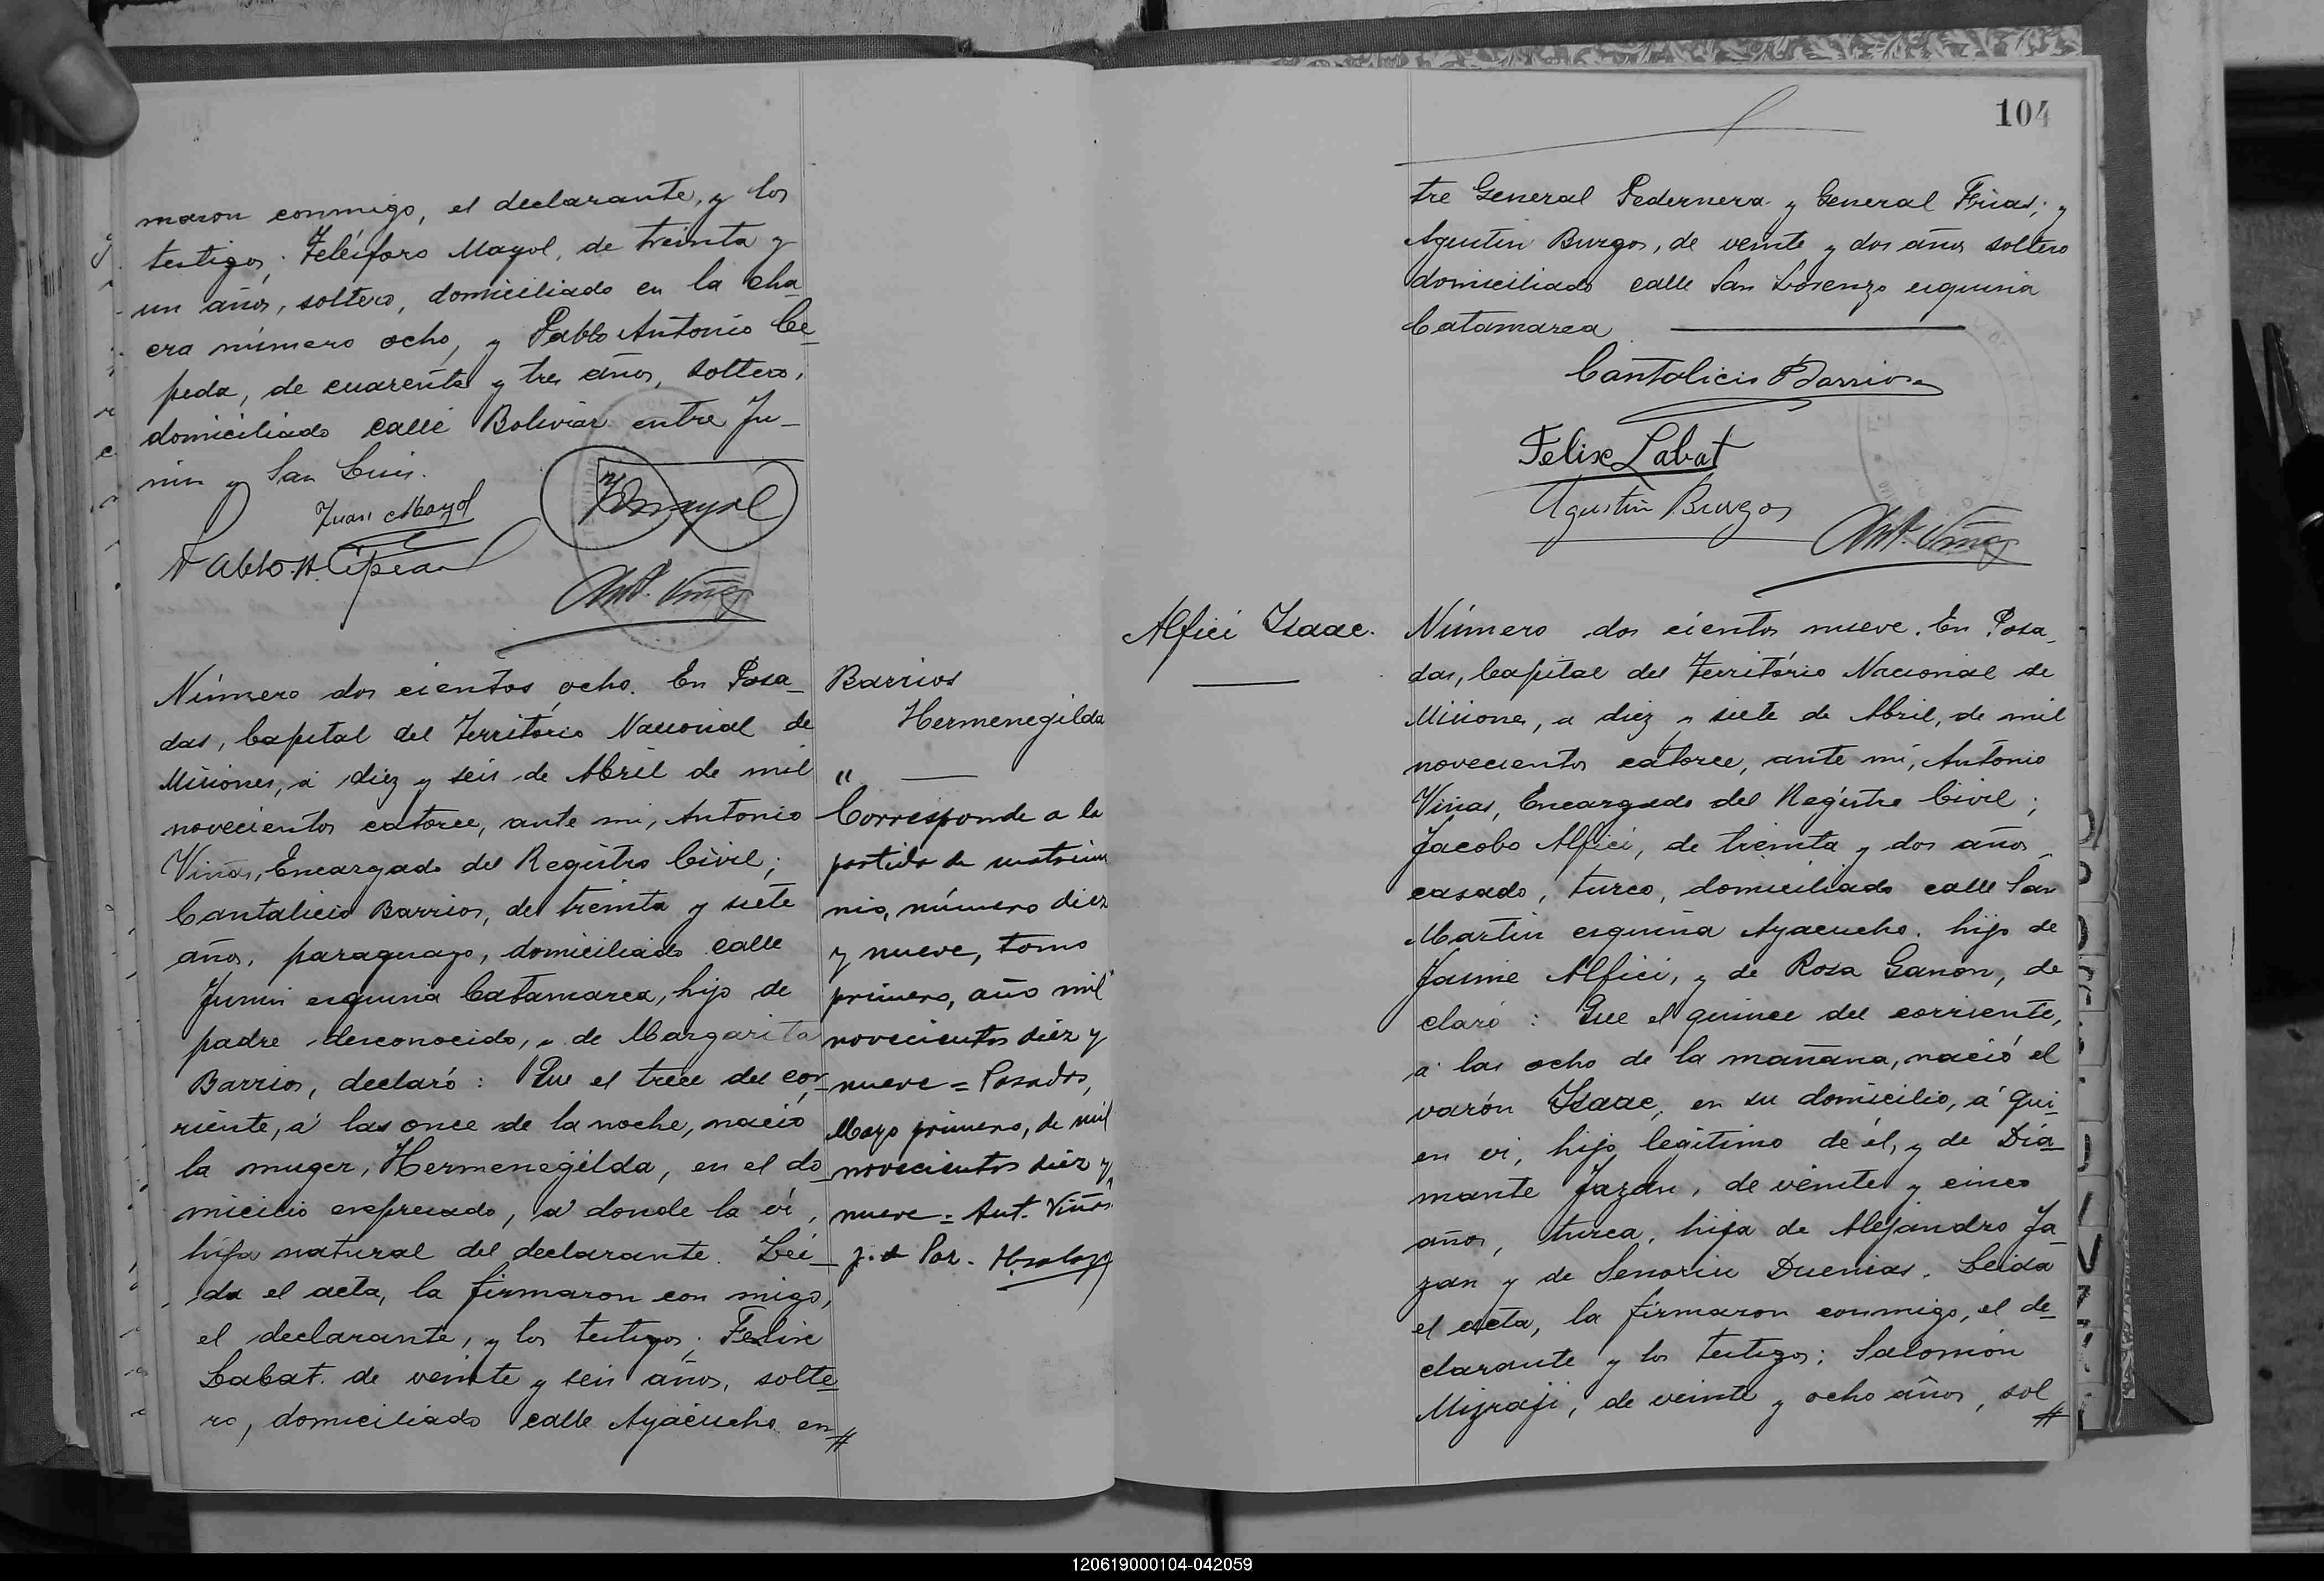 maron conmigo, el declarante, y los
testigos; Teléforo Mayol, de treinta y
un años, soltero, domiciliado en la cha_
cra número ocho, y Pablo Antonio Ce_
peda, de cuarenta y tres años, soltero,
domiciliado calle Bolivar entre Ju_
nin y San Luis.
Juan Mayol
Pablo A. Cepeda
Ant. Viñas
Número dos cientos ocho. En Posa_
das, Capital del Território Nacional de
Misiones, á diez y seis de Abril de mil
novecientos catorce, ante mi, Antonio
Viñas, Encargado del Registro Civil;
Cantalicio Barrios, de treinta y siete
años, paraguayo, domiciliado calle
Junin esquina Catamarca, hijo de
padre desconocido, y de Margarita
Barrios, declaró: Que el trece del cor_
riente, á las once de la noche, nació
la muger, Hermenegilda, en el do_
micilio expresado, a donde la ví,
hija natural del declarante. Lei_
da el acta, la firmaron con migo,
el declarante, y los testigos; Felix
Labat. de veinte y seis años, solte_
ro, domiciliado calle Ayacucho en_#
Barrios
Hermenegilda
"
Corresponde a la
partida de matrimo
nio, número diez
y nueve, tomo
primero, año mil
novecientos diez y
nueve = Posadas,
Mayo primero, de mil
novecientos diez y
nueve = Ant. Viñas
104
tre General Pedernera y General Frias; y
Agustin Burgos, de veinte y dos años soltero
domiciliado calle San Lorenzo esquina
Catamarca
Cantalicio Barrios
Felix Labat
Agustin Burgos
Ant. Viñas
Alfici Isaac.
Número dos cientos nueve. En Posa_
das, Capital del Território Nacional de
Misiones, a diez y siete de Abril, de mil
novecientos catorce, ante mi, Antonio
Viñas, Encargado del Registro Civil;
Jacobo Alfici, de treinta y dos años
casado, turco, domiciliado calle San
Martin esquina Ayacucho. hijo de
Jaime Alfici, y de Rosa Ganon, de
claró: Que el quince del corriente,
á las ocho de la mañana, nació el
varón Isaac, en su domicilio, á qui_
en ví, hijo legítimo de él, y de Dia_
mante Jazan, de veinte y cinco
años, turca, hija de Alejandro Ja_
zan y de Senoriu Duenias. Leida
el acta, la firmaron conmigo, el de_
clarante y los testigos; Salomón
Mizraji, de veinte y ocho años, sol_#
120619000104-042059